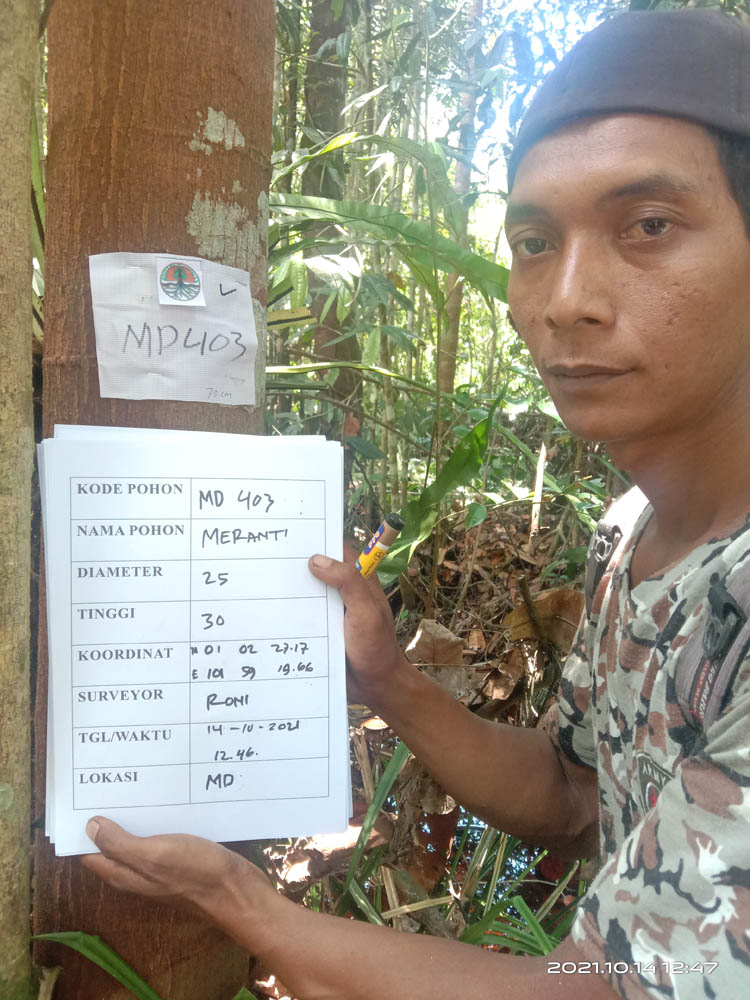 MD403
75 cm
KODE POHON MD 403
NAMA POHON MERANTI
DIAMETER 25
TINGGI 30
KOORDINAT N 01 02 27.17
E 101 59 19.66
SURVEYOR RONI
TGL/WAKTU 14-10-2021
12.46.
LOKASI MD
2021.10.14 12:47